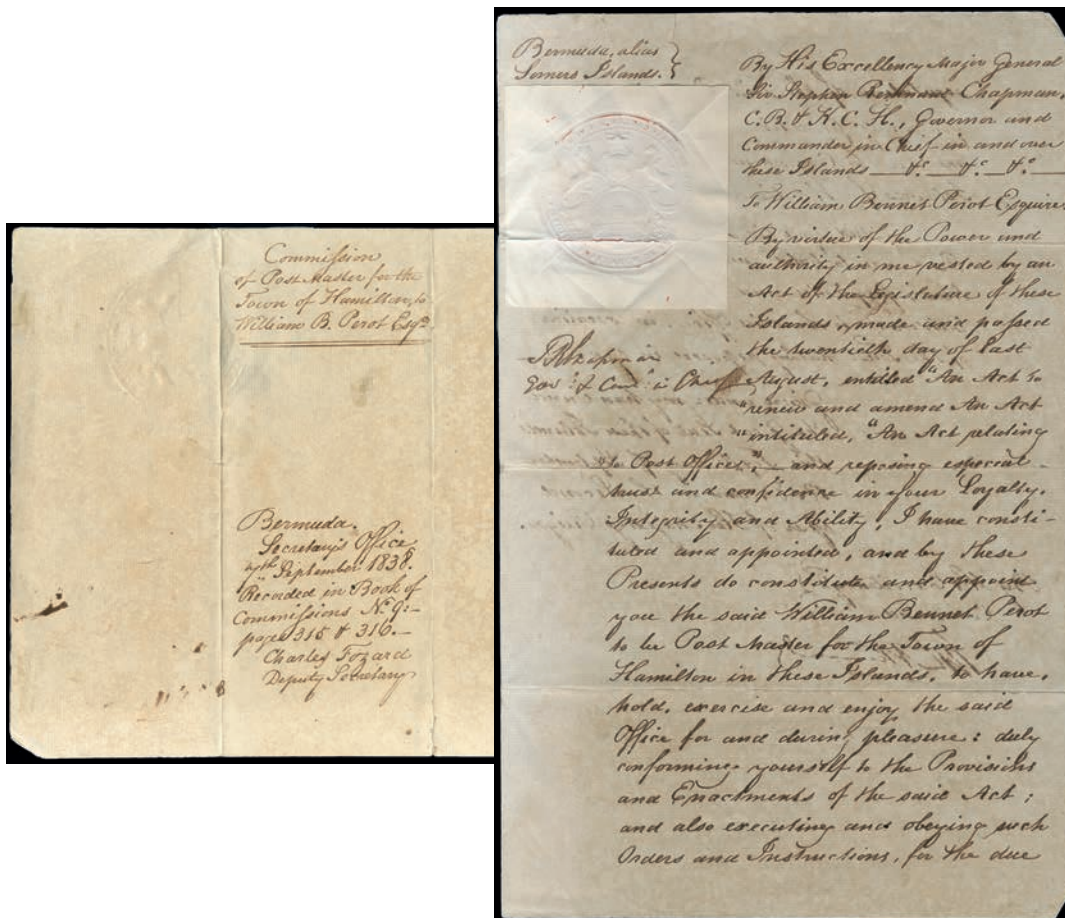 Commission
of Post Master for the
Town of Hamilton, to
William B. Perot Esqr.
Bermuda.
Secretary's Office
7th September 1838.
Recorded in Book of
Commissions No. 9:-
pages 315 & 316.-
Charles Fozard
Deputy Secretary
Bermuda, alias
Somers Islands.
By His Excellency Major General
Sir Stephen Remnant Chapman,
C. B. & K. C. H., Governor and
Commander in Chief in and over
these Islands — &c. — &c. — &c. —
To William Bennet Perot Esquire.
By virtue of the Power and
authority in me vested by an
Act of the Legislature of these
Islands, made and passed
the twentieth day of last
August, entitled "An Act to
"renew and amend An Act
"intituled, "An Act relating
"to Post Offices;" — and reposing especial
trust and confidence in your Loyalty,
Integrity and Ability, I have consti-
tuted and appointed, and by these
Presents do constitute and appoint
you the said William Bennet Perot
to be Post Master for the Town of
Hamilton in these Islands, to have,
hold, exercise and enjoy the said
Office for and during pleasure: duly
conforming yourself to the Provisions
and Enactments of the said Act;
and also executing and obeying such
Orders and Instructions, for the due
SRChapman
Govr. & Comr. in Chief